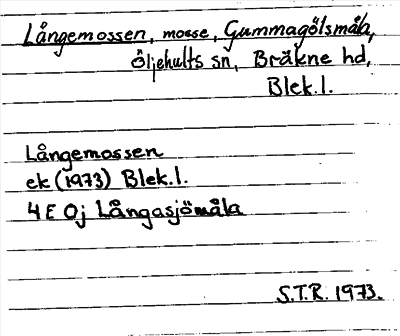 Långemossen, mosse, Gummagölsmåla,
Öljehults sn, Bräkne hd,
Blek.l.
Långemossen
ek (1973) Blek.l.
4E 0j Långasjömåla
S.T.R. 1973.